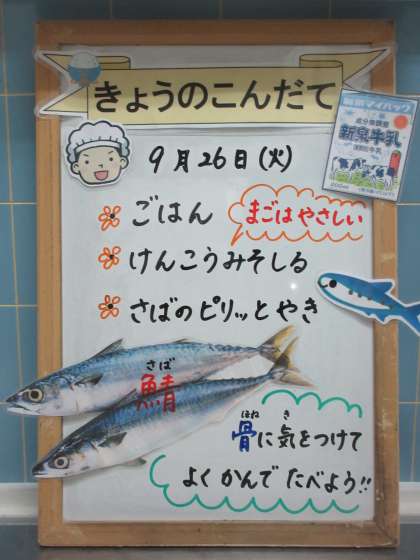 きょうのこんだて
9月26日(火)
ごはん
まごはやさしい
けんこうみそしる
さばのピリッとやき
さば
鯖
ほね き
骨に気をつけて
よくかんでたべよう!!
新泉牛乳